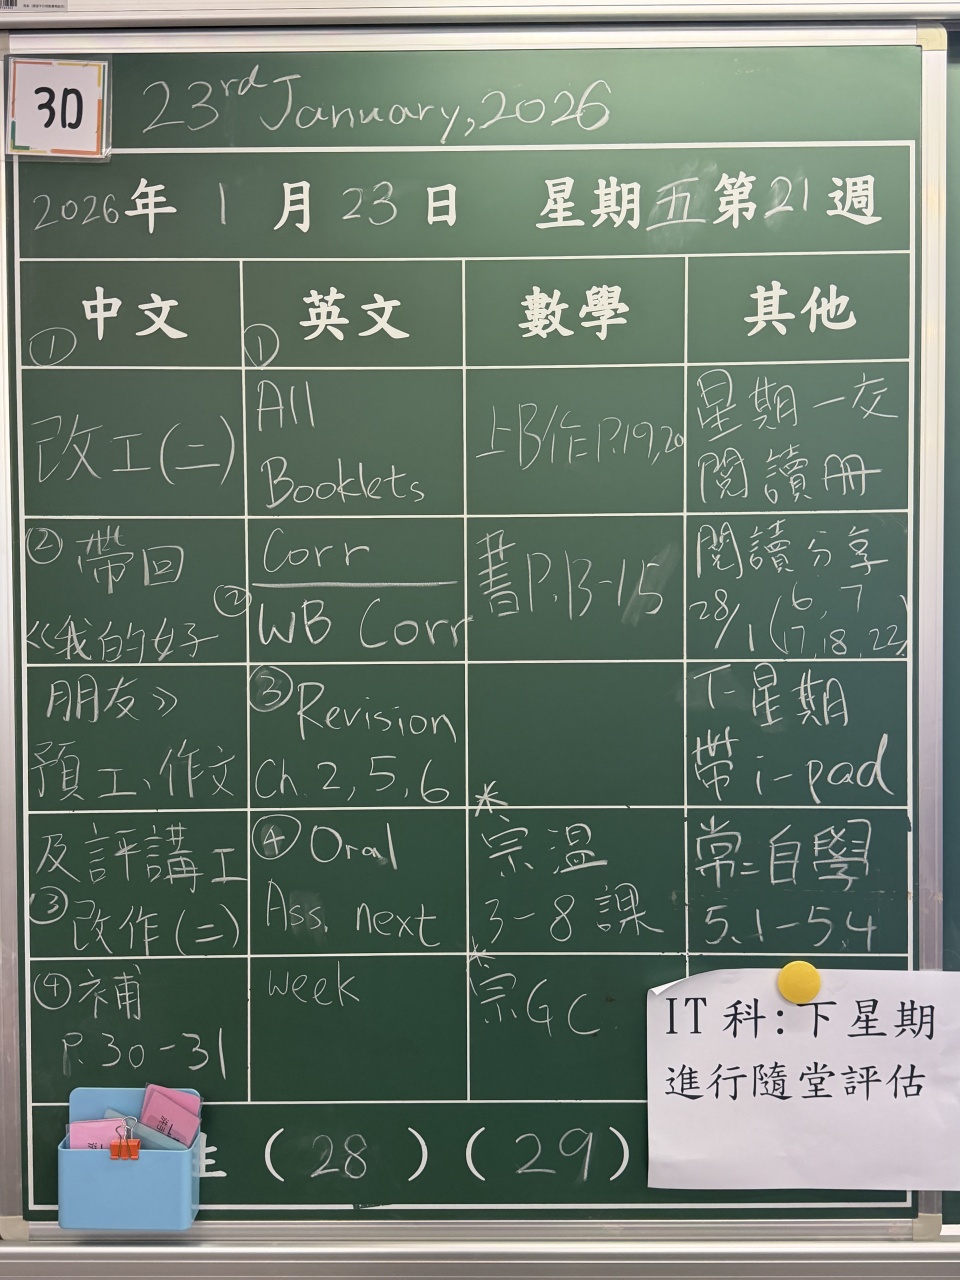 3D
23rd January, 2026
2026年 1 月 23 日 星期五第21週
中文
①
改工(二)
② 帶回
《我的好
朋友》
預工、作文
及評講工
③ 改作(二)
④ 補
P.30-31
英文
①
All
Booklets
Corr
② WB Corr
③ Revision
Ch. 2, 5, 6
④ Oral
Ass. next
week
數學
上B作P.19,20
書P.13-15
*
宗溫
3-8課
*
宗GC
其他
星期一交
閱讀冊
閱讀分享
28/1 (6, 7
17, 18, 22)
下星期
帶i-pad
常=自學
5.1-5.4
IT科:下星期
進行隨堂評估
生 ( 28 ) ( 29 )